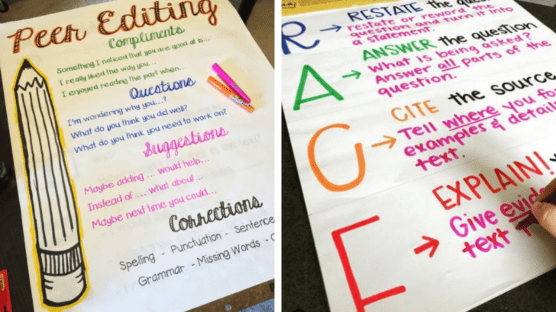 Peer Editing
Compliments
Something I noticed that you are good at is...
I really liked the way you...
I enjoyed reading the part when...
Questions
I'm wondering why you...?
What do you think you did well?
What do you think you need to work on?
Suggestions
Maybe adding ... would help...
Instead of ... what about...
Maybe next time you could...
Corrections
Spelling - Punctuation - Sentence
Grammar - Missing Words -
R → RESTATE the question
restate or reword the
question & turn it into
a statement.
A → ANSWER the question
What is being asked?
Answer all parts of the
question.
C → CITE the source
Tell where you
examples &
text.
E → EXPLAIN!
Give
text